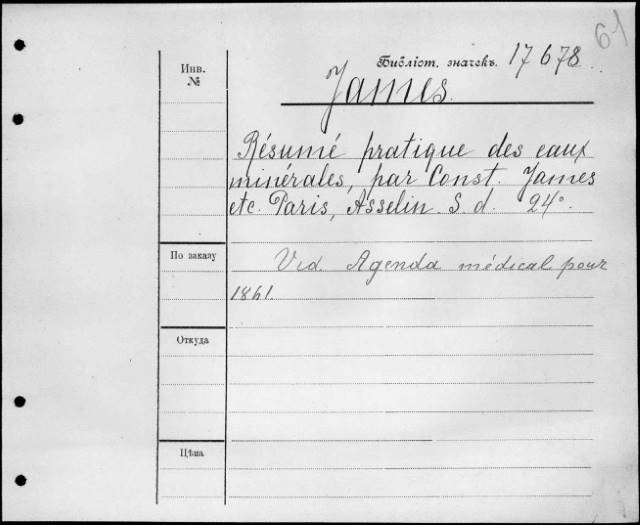 61
Инв.
№
Библіот. значекъ. 17678
James.
Résumé pratique des eaux
minérales, par Const. James
etc. Paris, Asselin. S. d. 24°.
По заказу
Vid. Agenda médical pour
1861.
Откуда
Цѣна